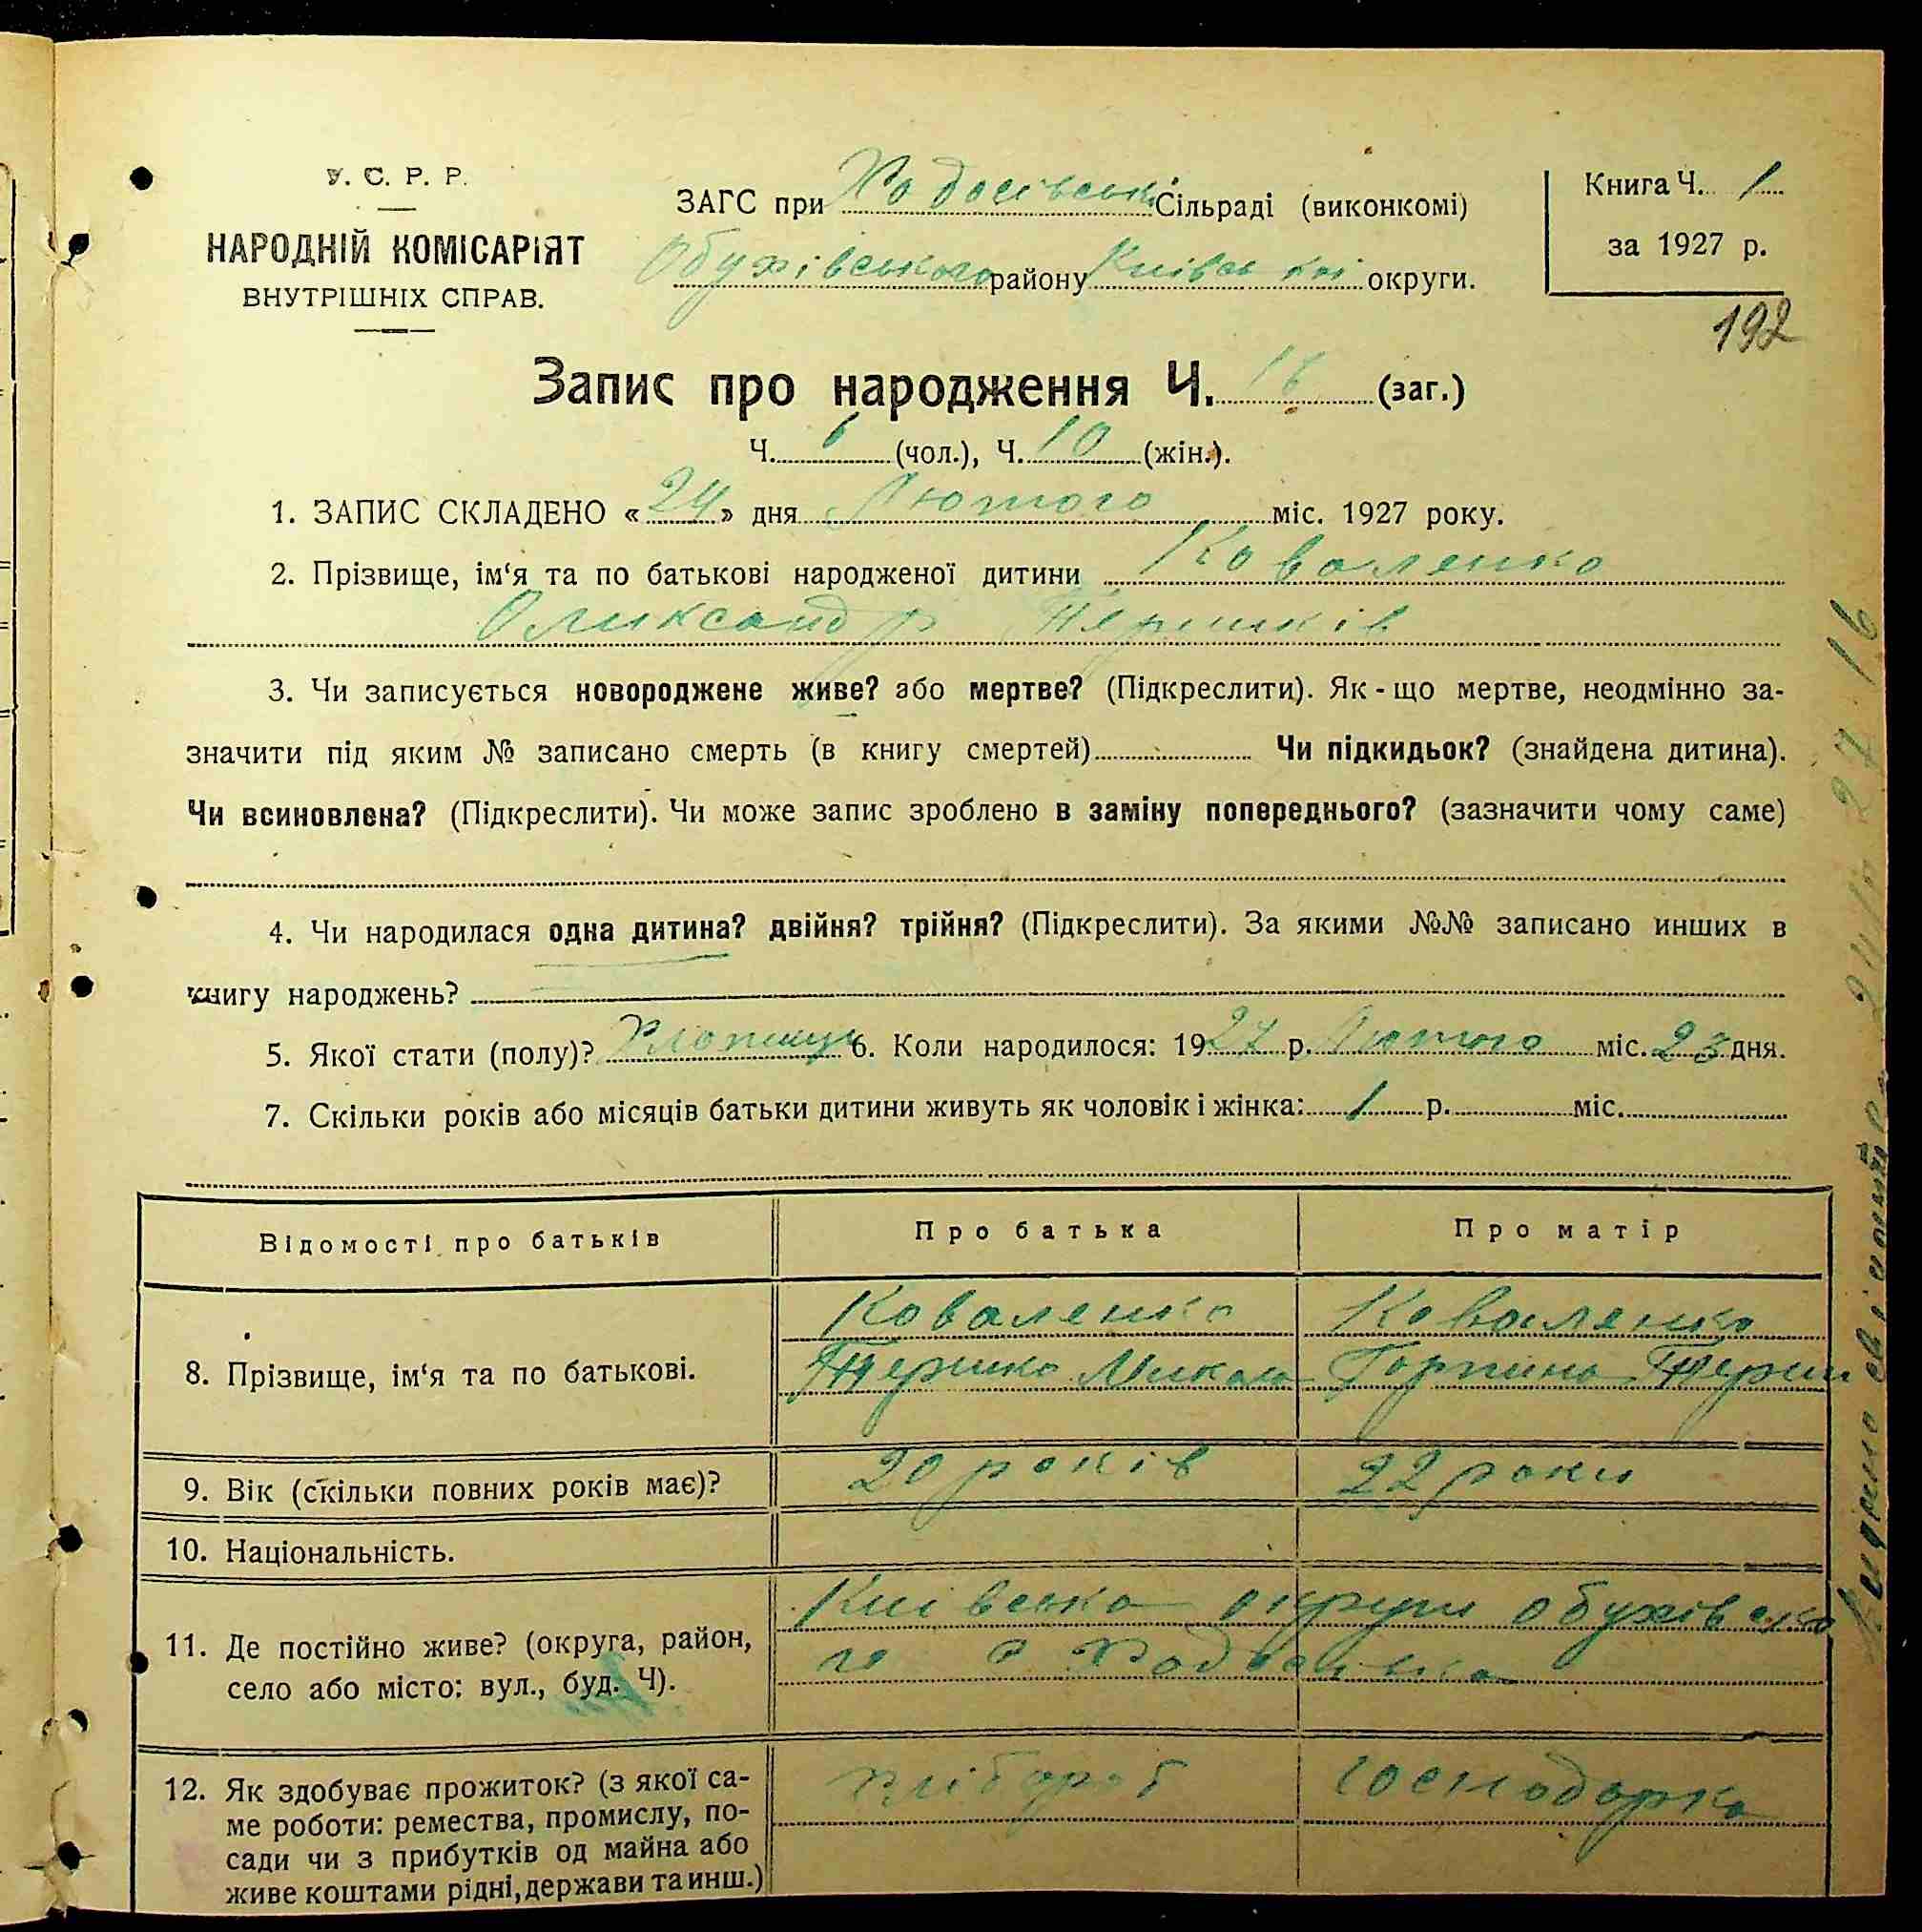 У. С. Р. Р.
НАРОДНІЙ КОМІСАРІЯТ
ВНУТРІШНІХ СПРАВ.
ЗАГС при Ходосівські Сільраді (виконкомі)
Обухівського району Київської округи.
Книга Ч. 1
за 1927 р.
192
Запис про народження Ч. 16 (заг.)
Ч. 6 (чол.), Ч. 10 (жін.).
1. ЗАПИС СКЛАДЕНО «24» дня Лютого міс. 1927 року.
2. Прізвище, ім‘я та по батькові народженої дитини Коваленко
Олександр
3. Чи записується новороджене живе? або мертве? (Підкреслити). Як-що мертве, неодмінно за-
значити під яким № записано смерть (в книгу смертей) Чи підкидьок? (знайдена дитина).
Чи всиновлена? (Підкреслити). Чи може запис зроблено в заміну попереднього? (зазначити чому саме)
4. Чи народилася одна дитина? двійня? трійня? (Підкреслити). За якими №№ записано инших в
книгу народжень?
5. Якої стати (полу)? Хлопець 6. Коли народилося: 1927 р. Лютого міс. 23 дня.
7. Скільки років або місяців батьки дитини живуть як чоловік і жінка: 1 р. міс.
Відомості про батьків Про батька Про матір
8. Прізвище, ім‘я та по батькові.
Коваленко Коваленко
Микола Горпина
9. Вік (скільки повних років має)? 20 років 22 роки
10. Національність.
11. Де постійно живе? (округа, район,
село або місто: вул., буд. Ч).
Київська округи обухівсько
го с
12. Як здобуває прожиток? (з якої са-
ме роботи: ремества, промислу, по-
сади чи з прибутків од майна або
живе коштами рідні, держави та инш.)
хлібороб господарка